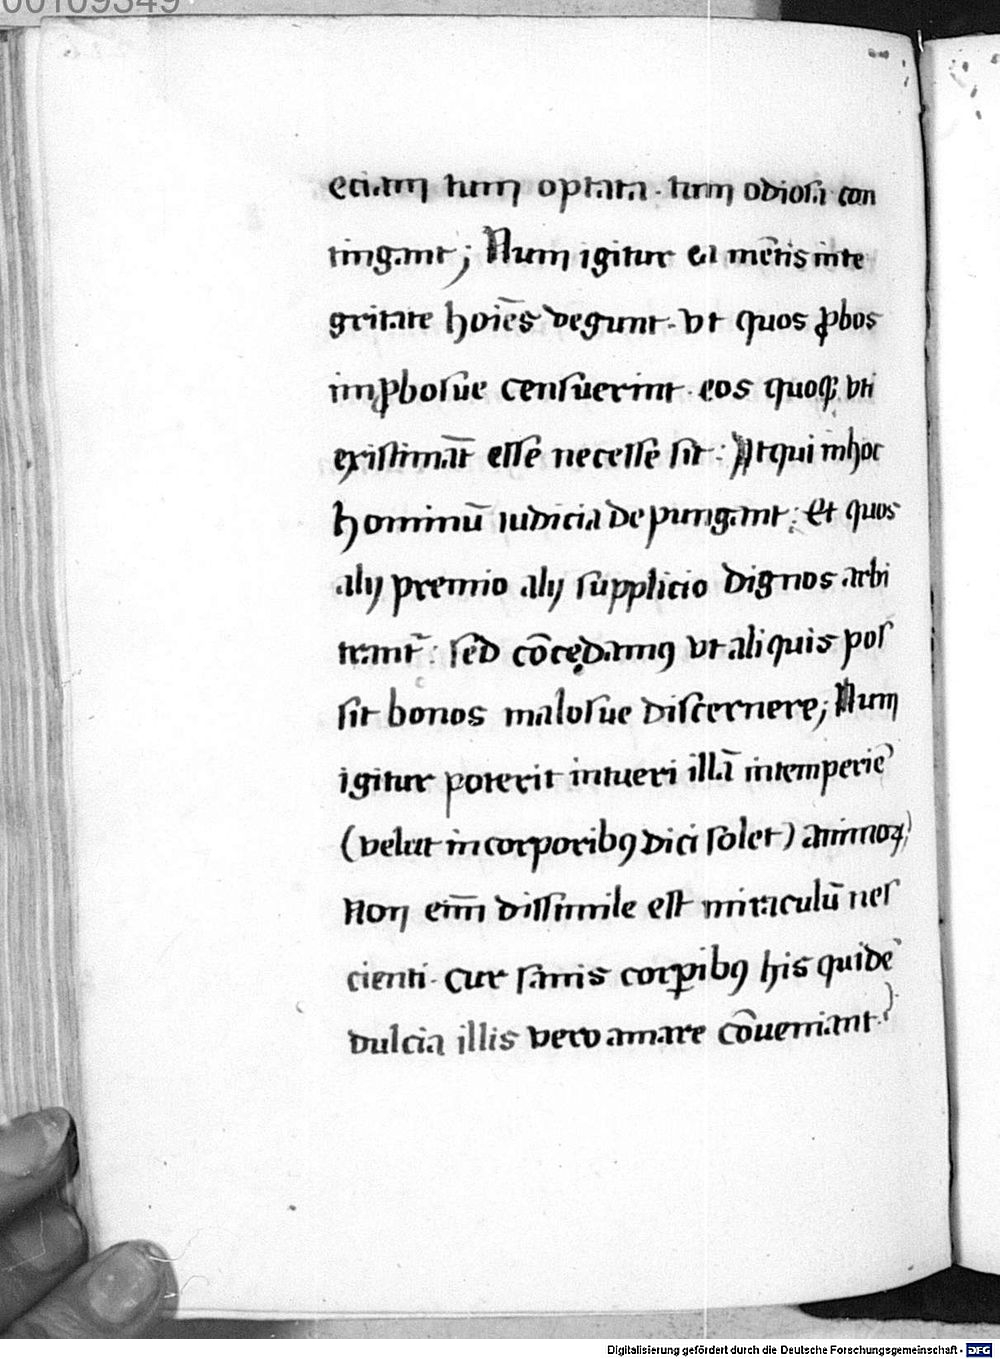 00109349
eciam tum optata · tum odiosa con
tingant; Num igitur ea mētis inte
gritate hoīēs degunt · vt quos ꝓbos
imꝓbosue censuerint · eos quoqꝫ vti
existimāt esse necesse sit : Atqui in hoc
hominū iudicia depungant : et quos
alij premio alij supplicio dignos arbi
trantr̄ : sed cōcędamꝰ vt aliquis pos
sit bonos malosue discernere; Num
igitur poterit intueri illā intemperiē
(velut in corporibꝰ dici solet) animoꝝ
Non eīm dissimile est miraculū nes
cienti · cur sanis corꝑibꝰ his quidē
dulcia illis vero amare cōueniant ·
Digitalisierung gefördert durch die Deutsche Forschungsgemeinschaft - DFG